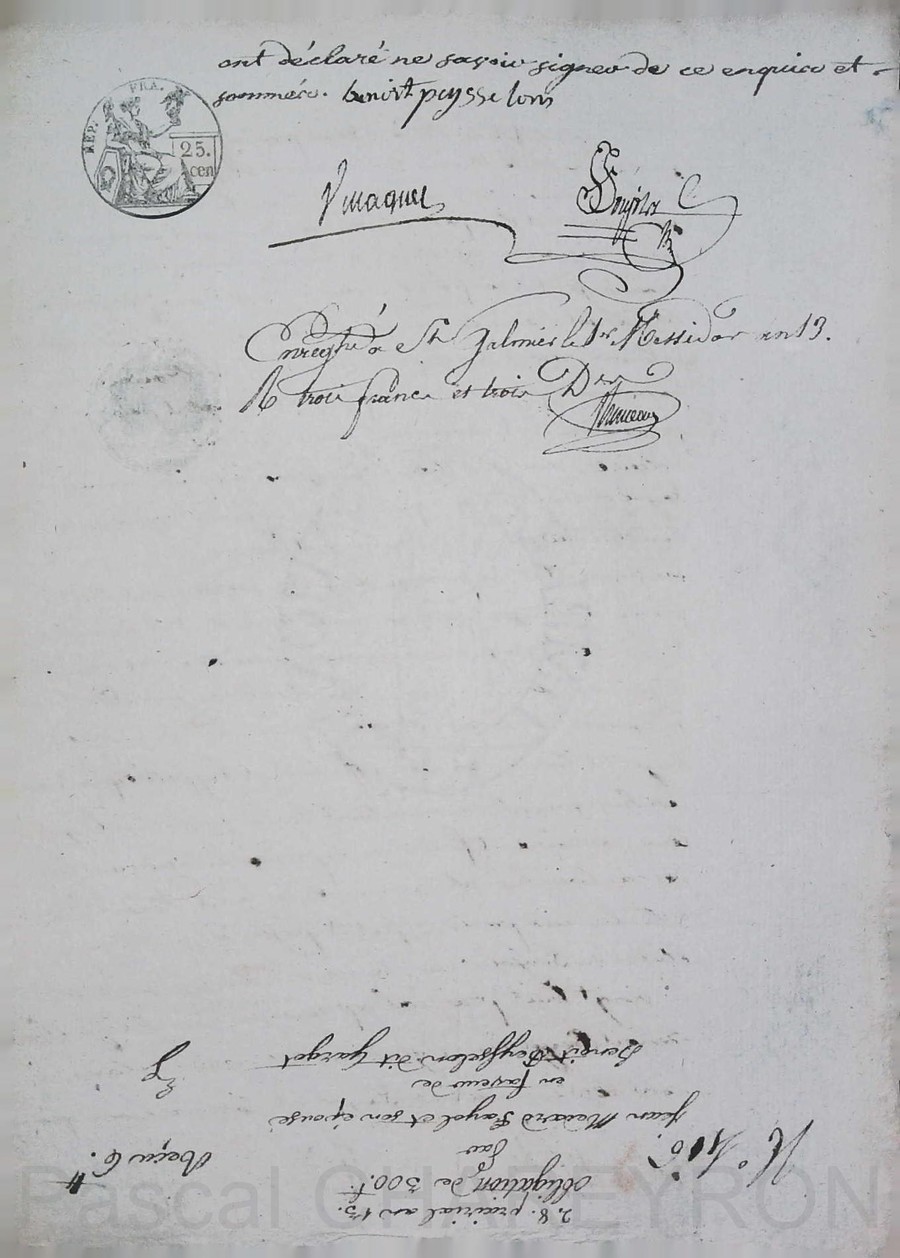 ont déclaré ne savoir signer de ce enquis et
sommés. benoit peysselon
REP. FRA.
25.
cen
Vmaguet
Enregtré a St Galmier le 1er Messidor an 13.
R trois francs et trois Des
28. prairial an 13.
obligation de 300.f.
par
Jean Medard Fayol et son epouse
en faveur de
Benoit Peysselon dit Gazgot
N°
Reçu 6.
Pascal CHAPEYRON